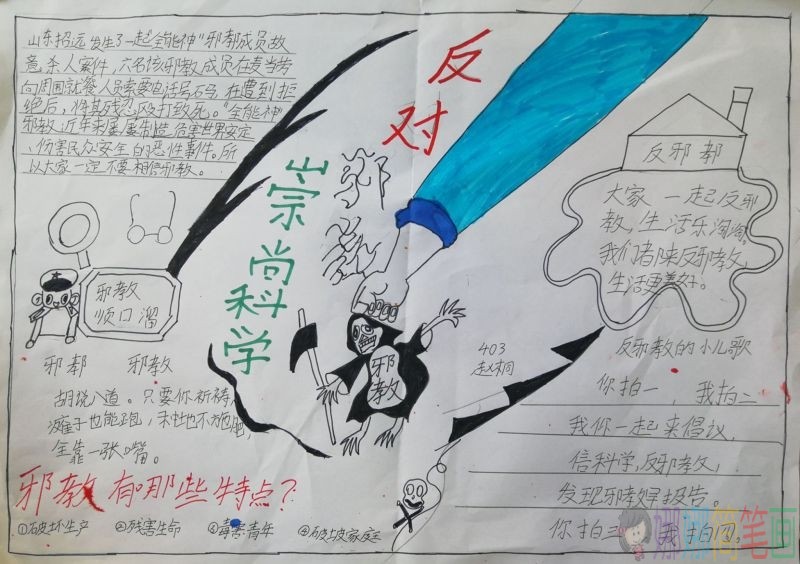 山东招远发生了一起“全能神”邪教成员故
意杀人案件，六名该邪教成员在麦当劳
向周围就餐人员索要电话号码，在遭到拒
绝后，将其残忍殴打致死。“全能神”
邪教近年来屡屡制造危害世界安定
、伤害民众安全的恶性事件。所
以大家一定不要相信邪教。
反对
邪教
崇尚科学
反邪教
大家一起反邪
教，生活乐淘淘。
我们都来反邪教，
生活更美好。
邪教
顺口溜
邪教 邪教
胡说八道。只要你祈祷，
瘫子也能跑，禾杜也不施肥，
全靠一张嘴。
邪教
403
赵桐
反邪教的小儿歌
你拍一，我拍二
我你一起来倡议，
信科学，反邪教，
发现邪教早报告。
你拍三，我拍四。
邪教有哪些特点？
①破坏生产 ②残害生命 ③毒害青年 ④破坡家庭
简笔画